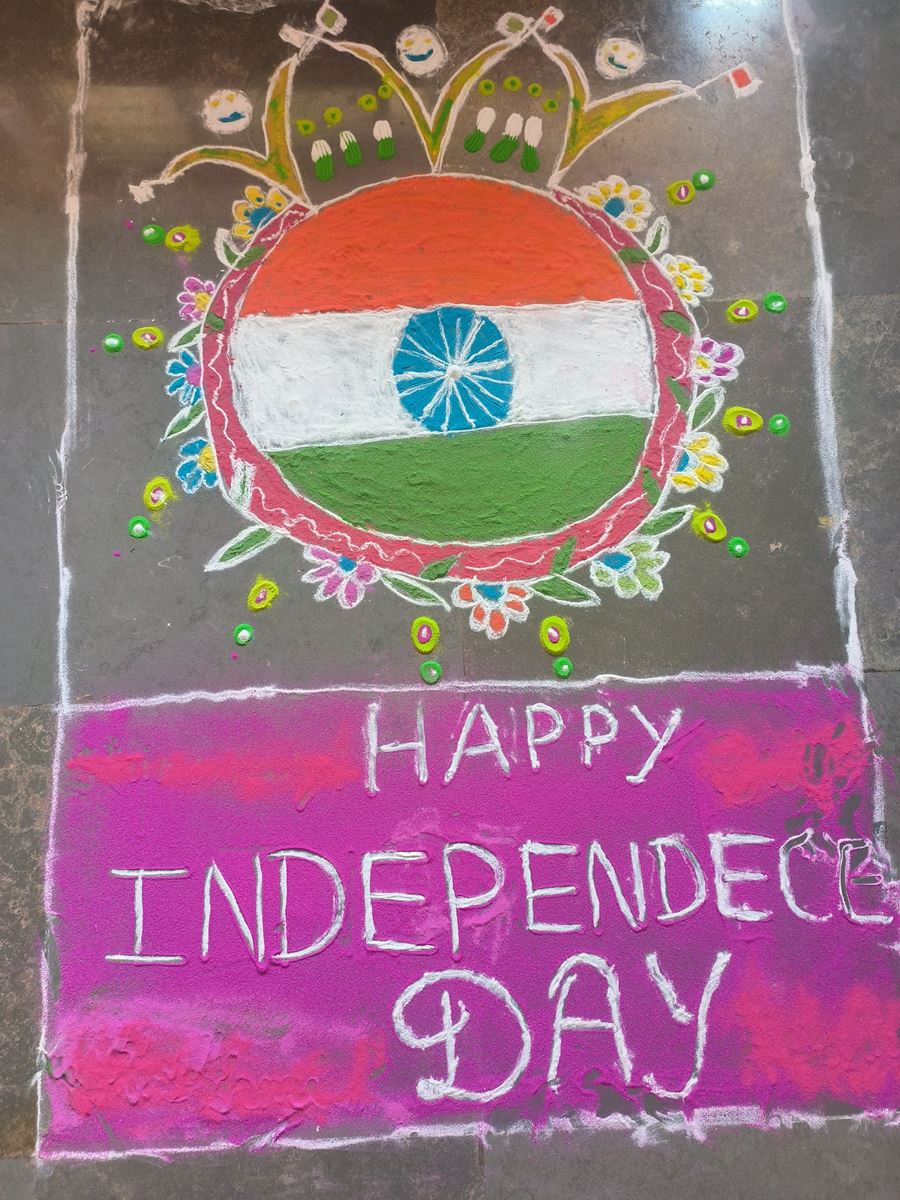 HAPPY
INDEPENDECE
DAY